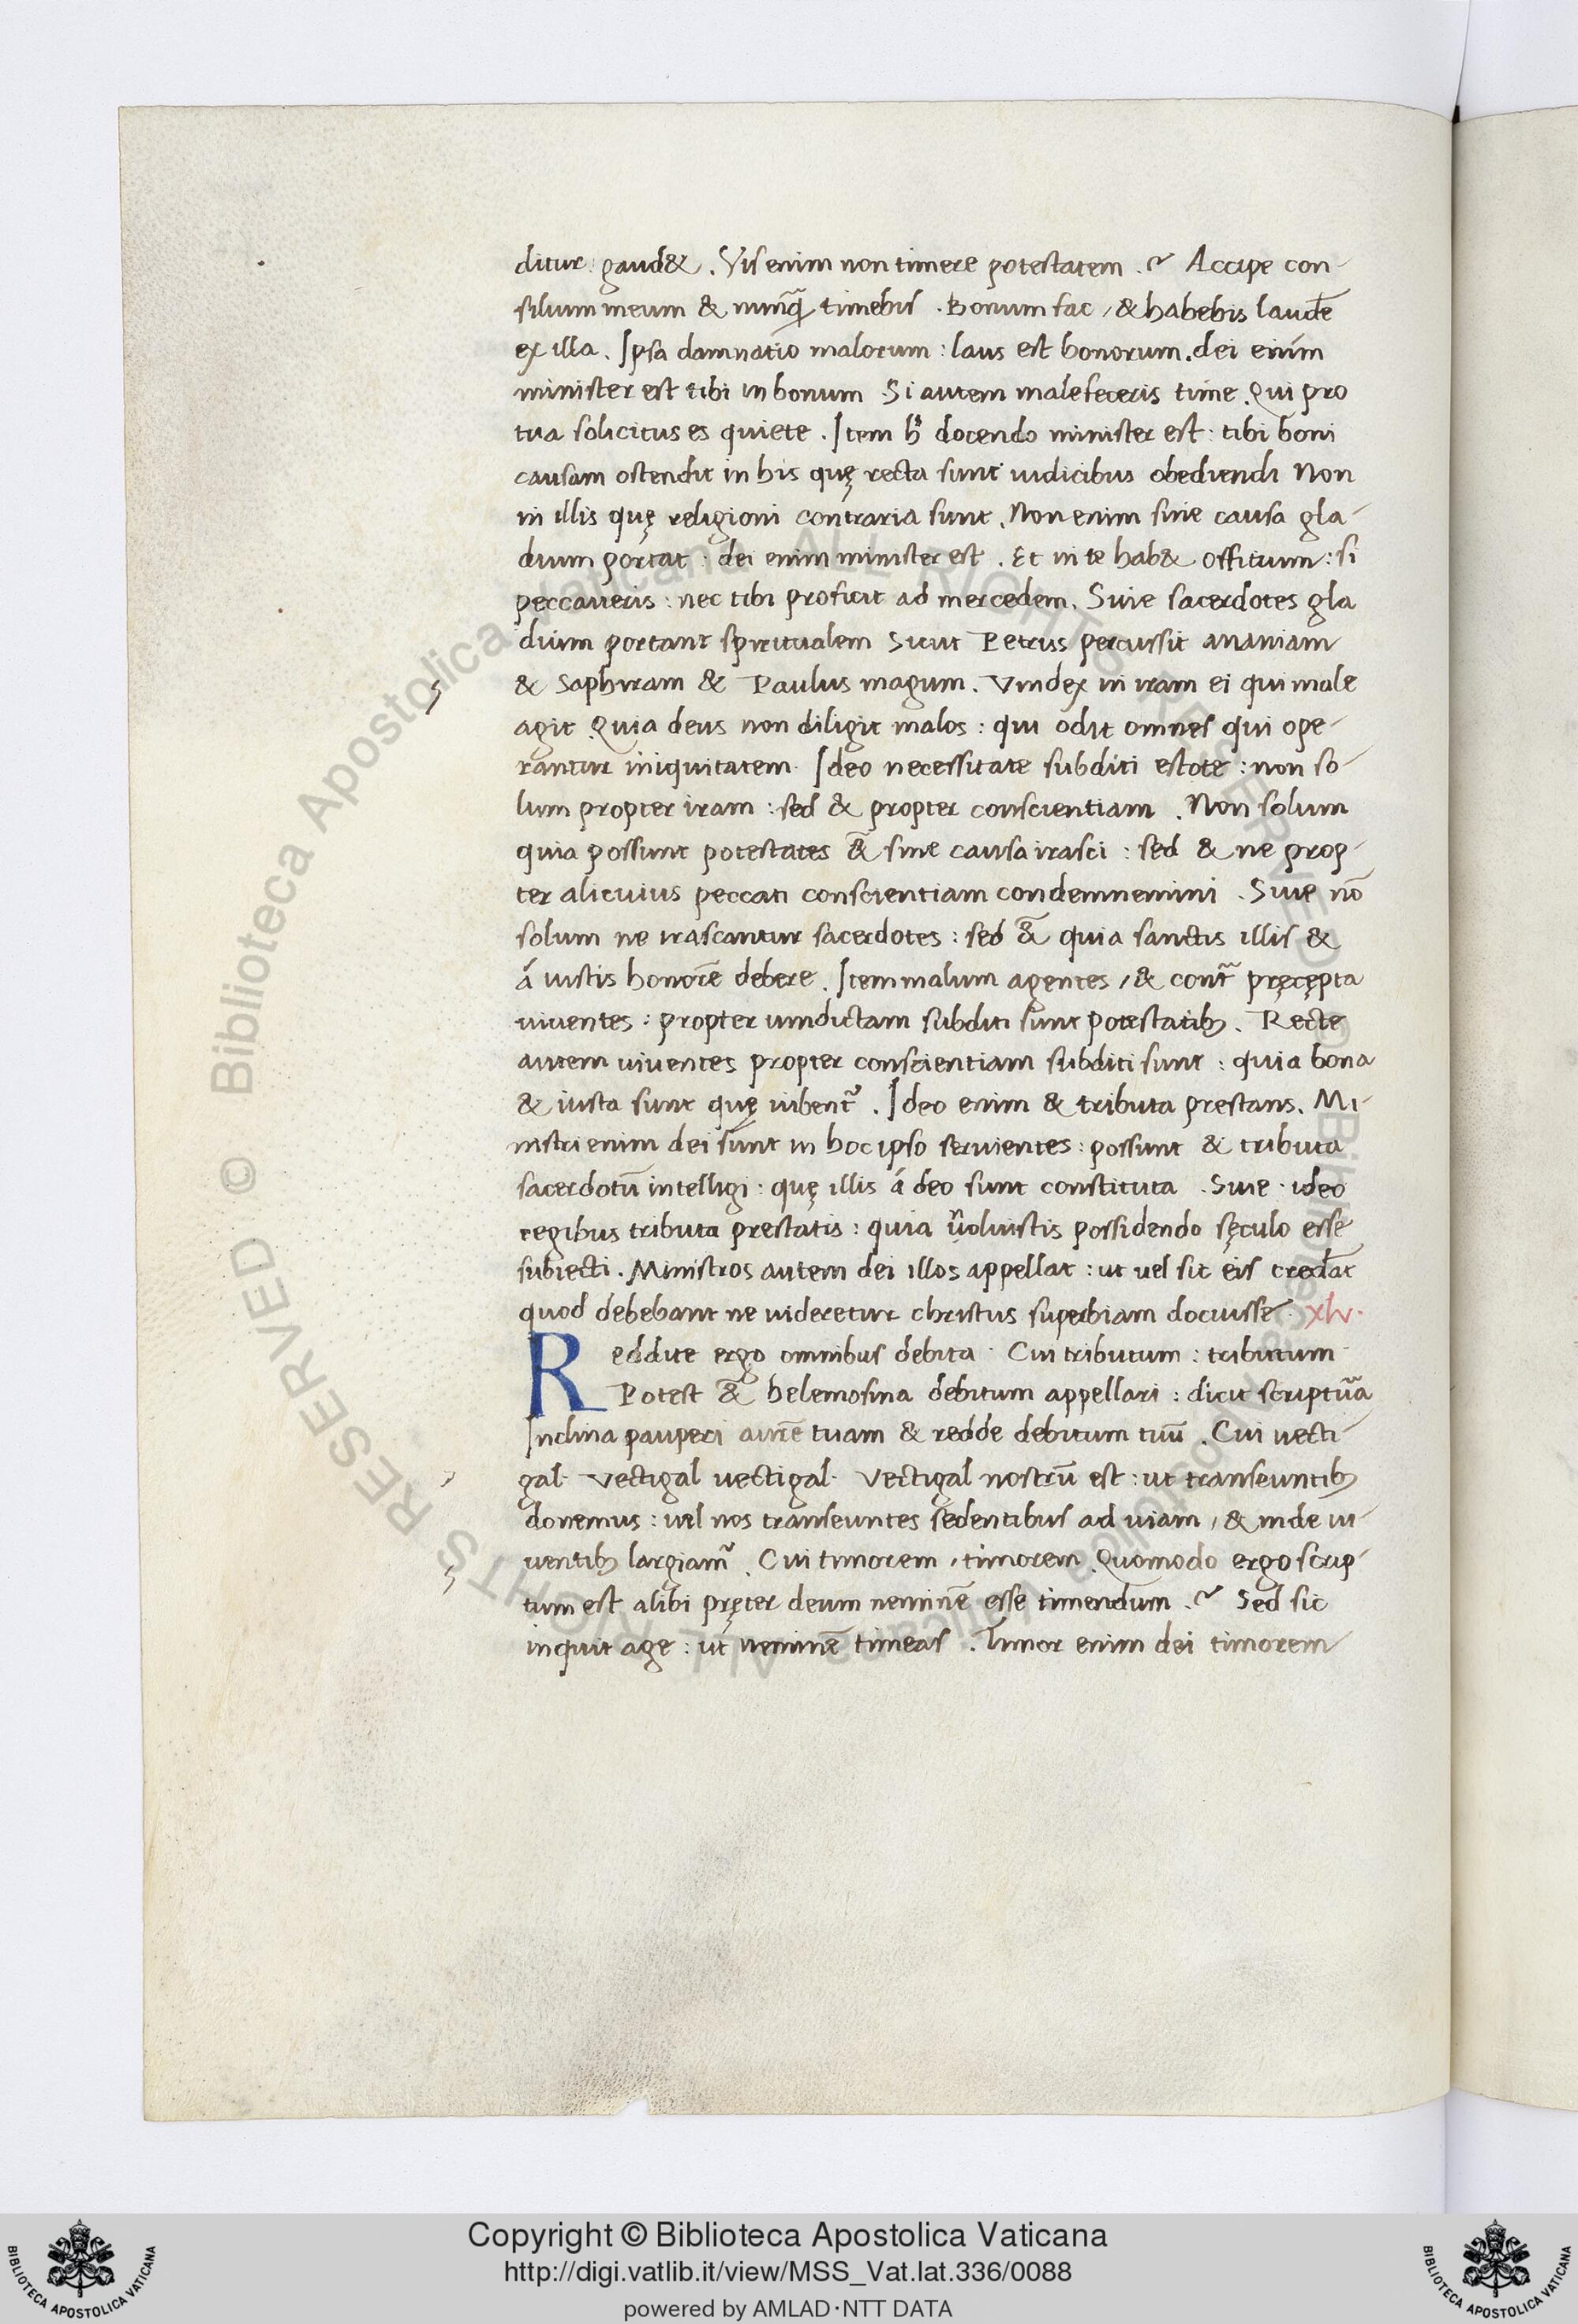 ditur: gaud&. Vis enim non timere potestatem .? Accipe con-
silium meum & nunq̄ timebis . Bonum fac, & habebis laudē
ex illa. Ipsa damnatio malorum: laus est bonorum. dei enim
minister est tibi in bonum Si autem malefeceris time. Qui pro
tua solicitus es quiete. Item docendo minister est: tibi boni
causam ostendit in his quę recta sunt iudicibus obediendi Non
in illis quę religioni contraria sunt. Non enim sine causa gla-
dium portat: dei enim minister est. Et in te hab& offitium: si
peccaueris: nec tibi proficit ad mercedem. Siue sacerdotes gla
dium portant spiritualem Sicut Petrus percussit ananiam
& Saphiram & Paulus magum. Vindex in iram ei qui male
agit Quia deus non diligit malos: qui odit omnes qui ope-
rantur iniquitatem. Ideo necessitate subditi estote: non so-
lum propter iram: sed & propter conscientiam. Non solum
quia possunt potestates &̄ sine causa irasci: sed & ne prop-
ter alicuius peccati conscientiam condemnemini. Siue nō
solum ne irascantur sacerdotes: sed &̄ quia sanctis illis &
á iustis honorē debere. Item malum agentes, & cont̄ pręcępta
uiuentes: propter uindictam subditi sunt potestatib;. Recte
autem uiuentes propter conscientiam subditi sunt: quia bona
& iusta sunt quę iubent̄. Ideo enim & tributa prestans. Mi-
nistri enim dei sunt in hoc ipso seruientes: possunt & tributa
sacerdotū intelligi: quę illis á deo sunt constituta. Siue ideo
regibus tributa prestatis: quia uoluistis possidendo sęculo esse
subiecti. Ministros autem dei illos appellat: ut uel sic eis redāt
quod debebant ne uideretur christus superbiam docuisse. xlv.
Reddite ergo omnibus debita. Cui tributum: tributum.
Potest &̄ helemosina debitum appellari: dicit scriptūa
Inclina pauperi aurē tuam & redde debitum tuū. Cui uecti-
gal. Vectigal uectigal. Vectigal nostrū est: ut transeuntib;
donemus: uel nos transeuntes sedentibus ad uiam, & inde ui-
uentib; largiam̄. Cui timorem, timorem Quomodo ergo scrip-
tum est alibi pręter deum neminē esse timendum.? Sed sic
inquit age: ut neminē timeas. Timor enim dei timorem
Copyright © Biblioteca Apostolica Vaticana
http://digi.vatlib.it/view/MSS_Vat.lat.336/0088
powered by AMLAD·NTT DATA